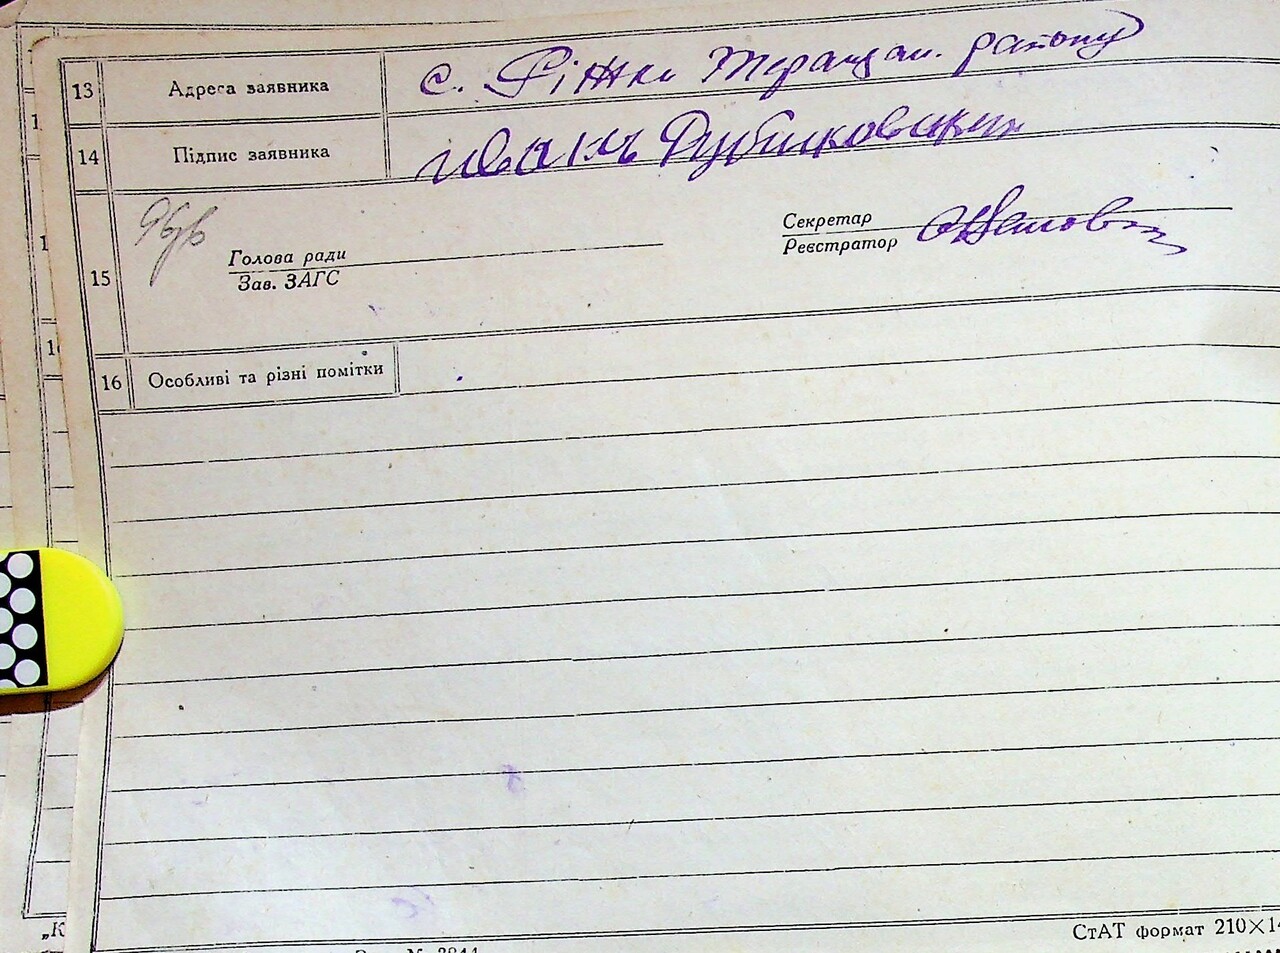 13 Адреса заявника с. Ріжки Таращан. району
14 Підпис заявника иванъ
15 Голова ради
Зав. ЗАГС
Секретар
Реєстратор
16 Особливі та різні помітки
„К
СтАТ формат 210×14